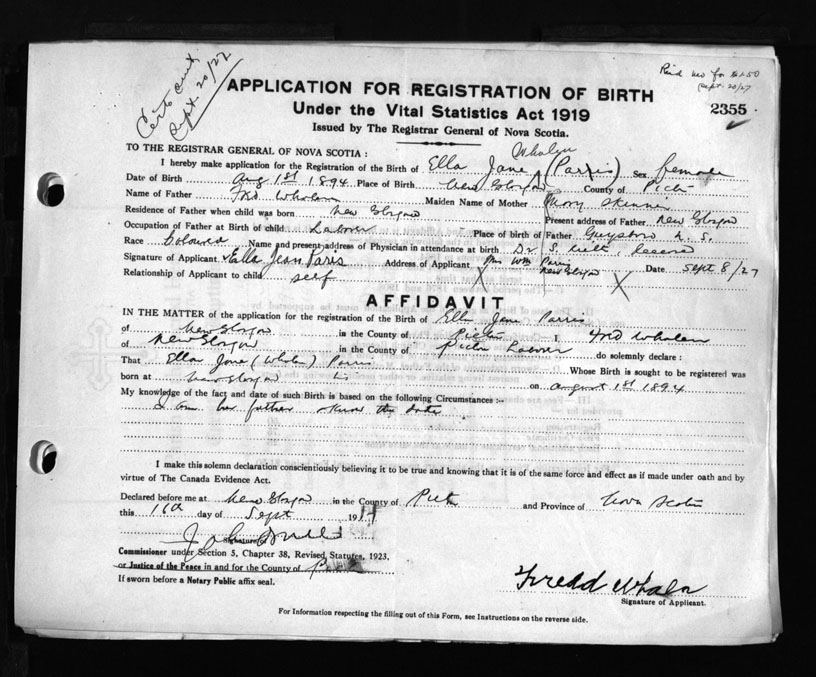 Sept. 20/27
Sept. 20/27
APPLICATION FOR REGISTRATION OF BIRTH
Under the Vital Statistics Act 1919
2355
Issued by The Registrar General of Nova Scotia.
TO THE REGISTRAR GENERAL OF NOVA SCOTIA :
Whalen
I hereby make application for the Registration of the Birth of Ella Jane (Parris) Sex female
Date of Birth Aug 1st 1894 Place of Birth New Glasgow County of Pictou
Name of Father Fred Whalen Maiden Name of Mother Mary Skinner
Residence of Father when child was born New Glasgow Present address of Father New Glasgow
Occupation of Father at Birth of child Laborer Place of birth of Father Guysboro N. S.
Race Coloured Name and present address of Physician in attendance at birth Dr
Signature of Applicant Ella Jean Paris Address of Applicant Mrs Wm Parris New Glasgow Date Sept 8/27
Relationship of Applicant to child self
AFFIDAVIT
IN THE MATTER of the application for the registration of the Birth of Ella Jane Parris
of New Glasgow in the County of Pictou I, Fred Whalen
of New Glasgow in the County of Pictou Laborer do solemnly declare :
That Ella Jane (Whalen) Parris Whose Birth is sought to be registered was
born at New Glasgow on August 1st 1894
My knowledge of the fact and date of such Birth is based on the following Circumstances :-
I am her father & know the date
I make this solemn declaration conscientiously believing it to be true and knowing that it is of the same force and effect as if made under oath and by
virtue of The Canada Evidence Act.
Declared before me at New Glasgow in the County of Pictou and Province of Nova Scotia
this day of Sept 19
Signature of
Commissioner under Section 5, Chapter 38, Revised Statutes, 1923,
or Justice of the Peace in and for the County of
If sworn before a Notary Public affix seal.
Fredd Whalen
Signature of Applicant.
For Information respecting the filling out of this Form, see Instructions on the reverse side.